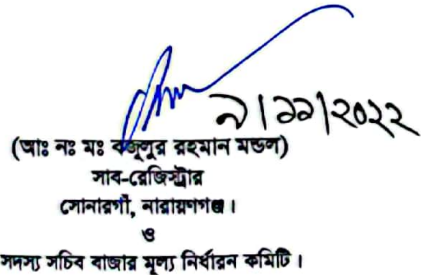 ৯/১১/২০২২
(আঃ নঃ মঃ বজলুর রহমান মন্ডল)
সাব-রেজিস্ট্রার
সোনারগাঁ, নারায়ণগঞ্জ।
ও
সদস্য সচিব বাজার মূল্য নির্ধারন কমিটি।